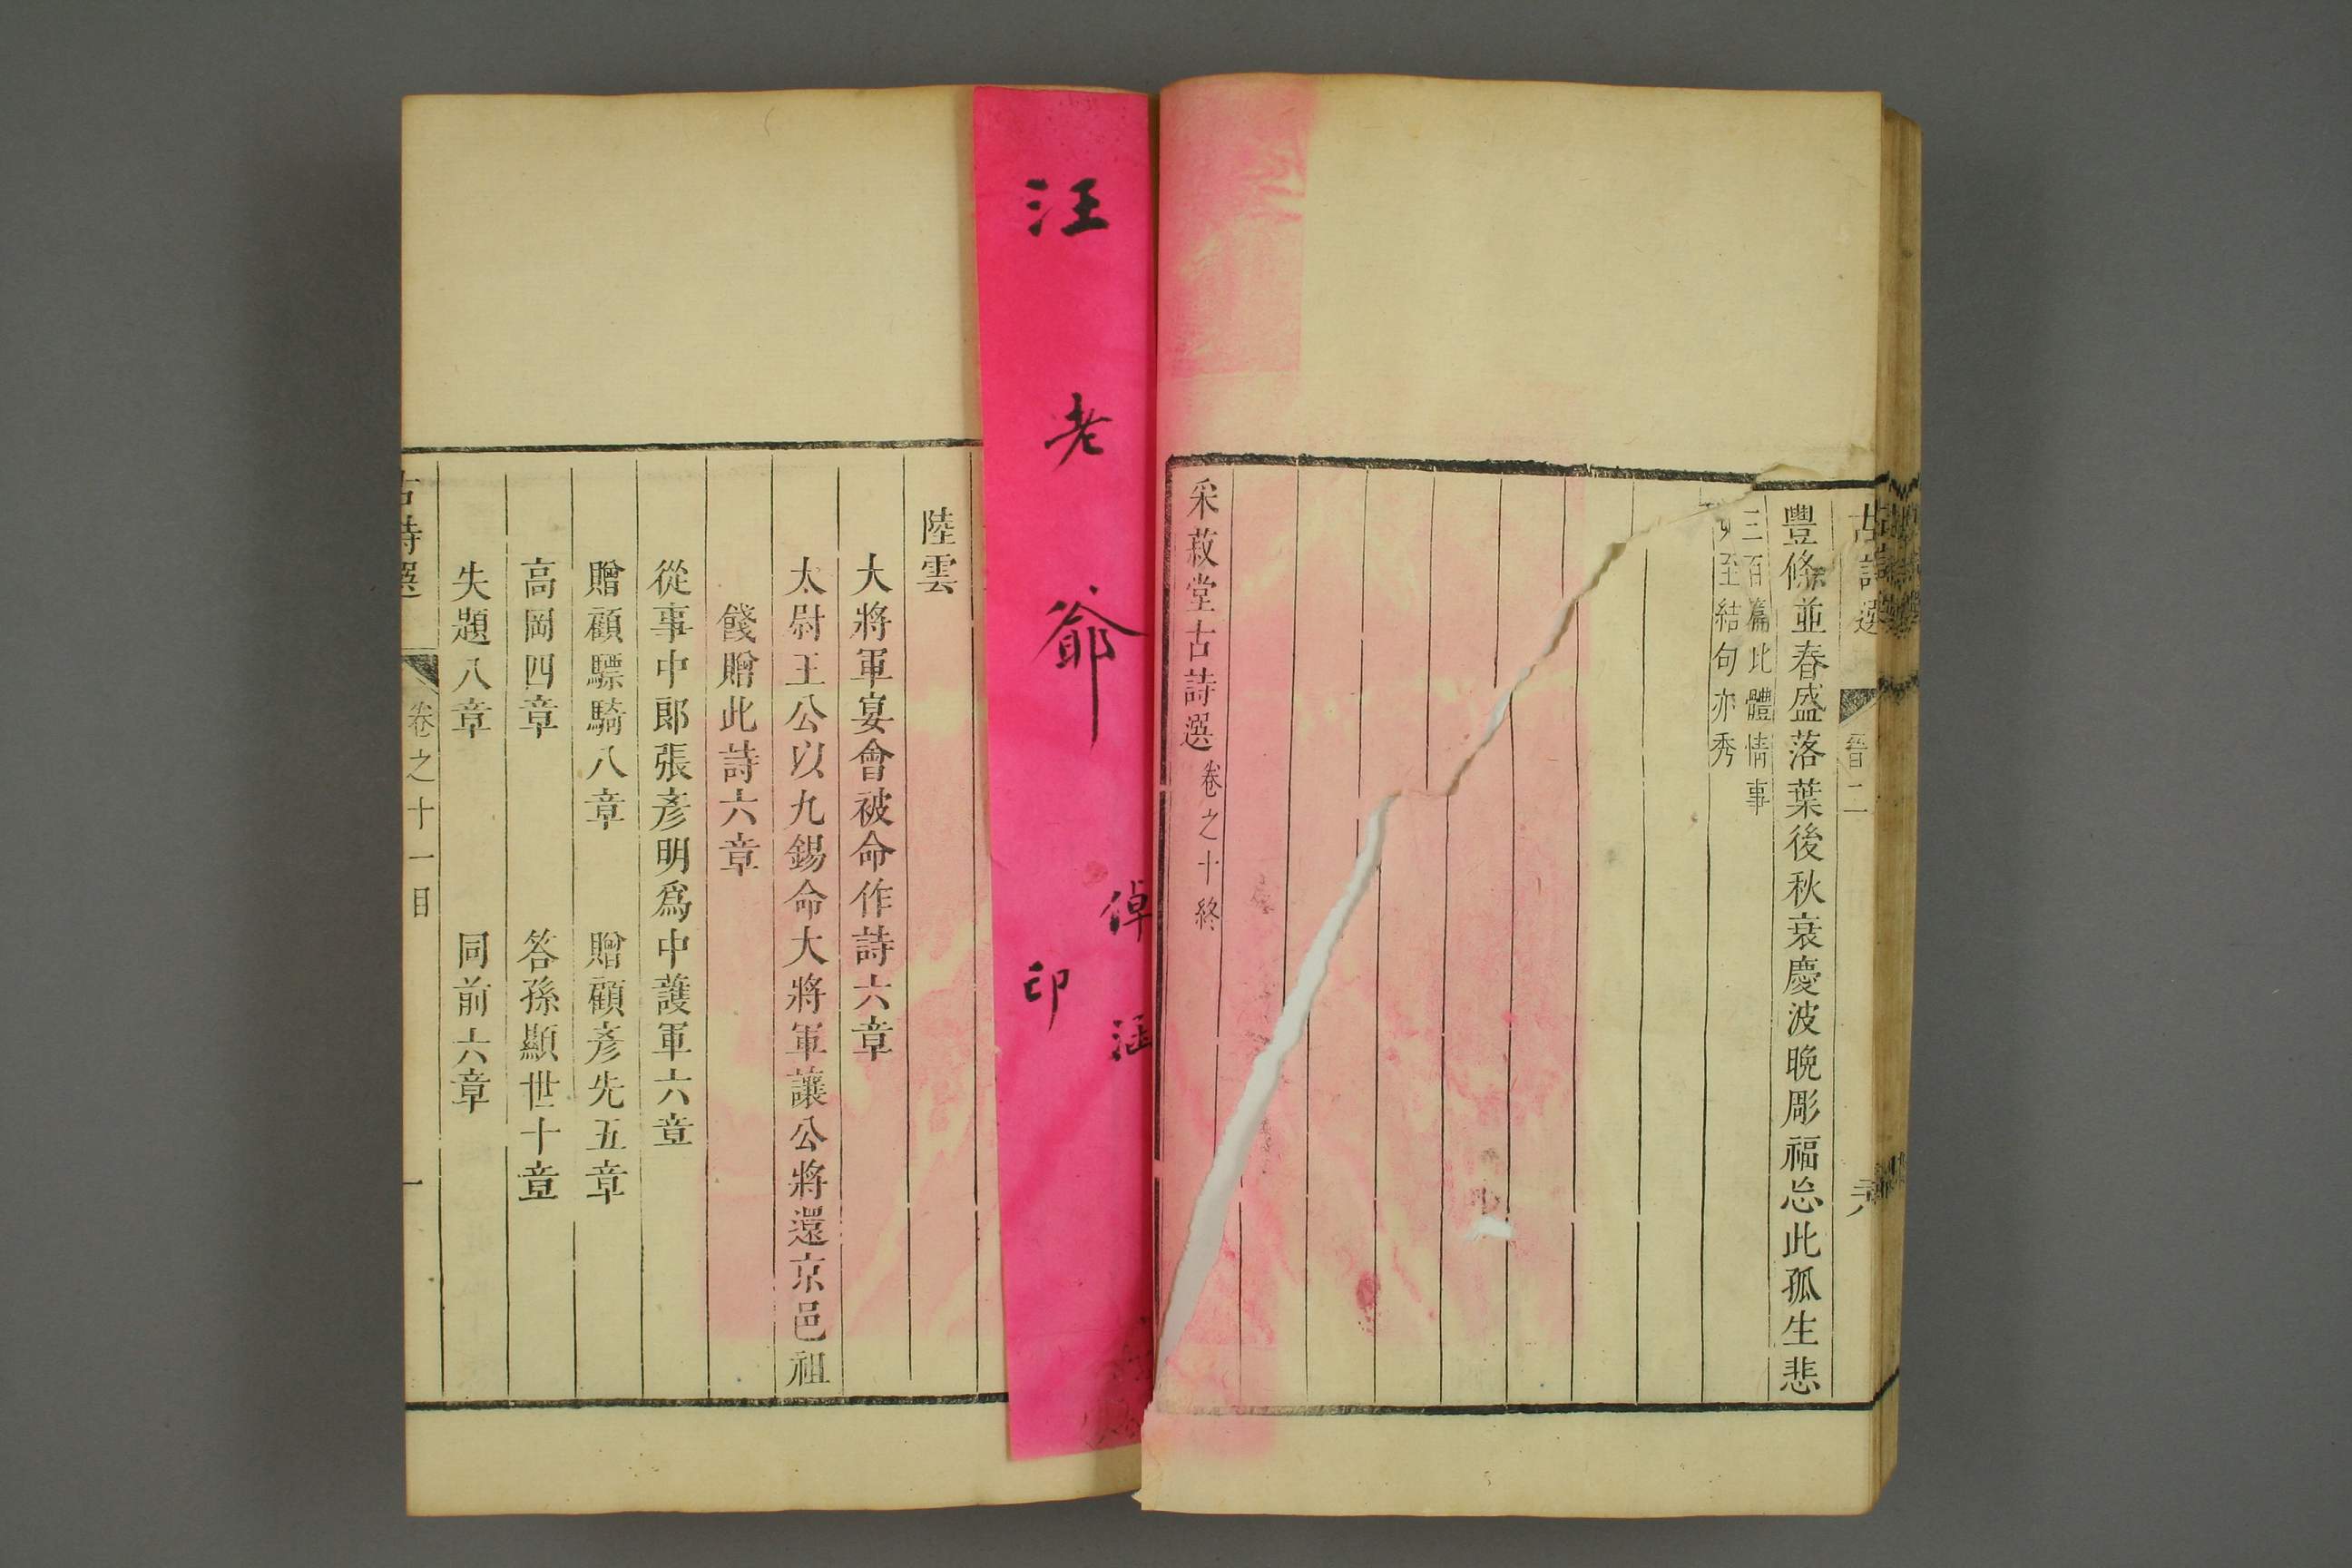 古詩選 晉二
豐條並春盛落葉後秋衰慶波晚彫福忩此孤生悲
三百篇此體情事
至結句亦秀
采菽堂古詩選卷之十終
汪老爺
倬涵
印
陸雲
大將軍宴會被命作詩六章
太尉王公以九錫命大將軍讓公將還京邑祖
餞贈此詩六章
從事中郎張彥明爲中護軍六章
贈顧驃騎八章 贈顧彥先五章
高岡四章 答孫顯世十章
失題八章 同前六章
古詩選 卷之十一目 一